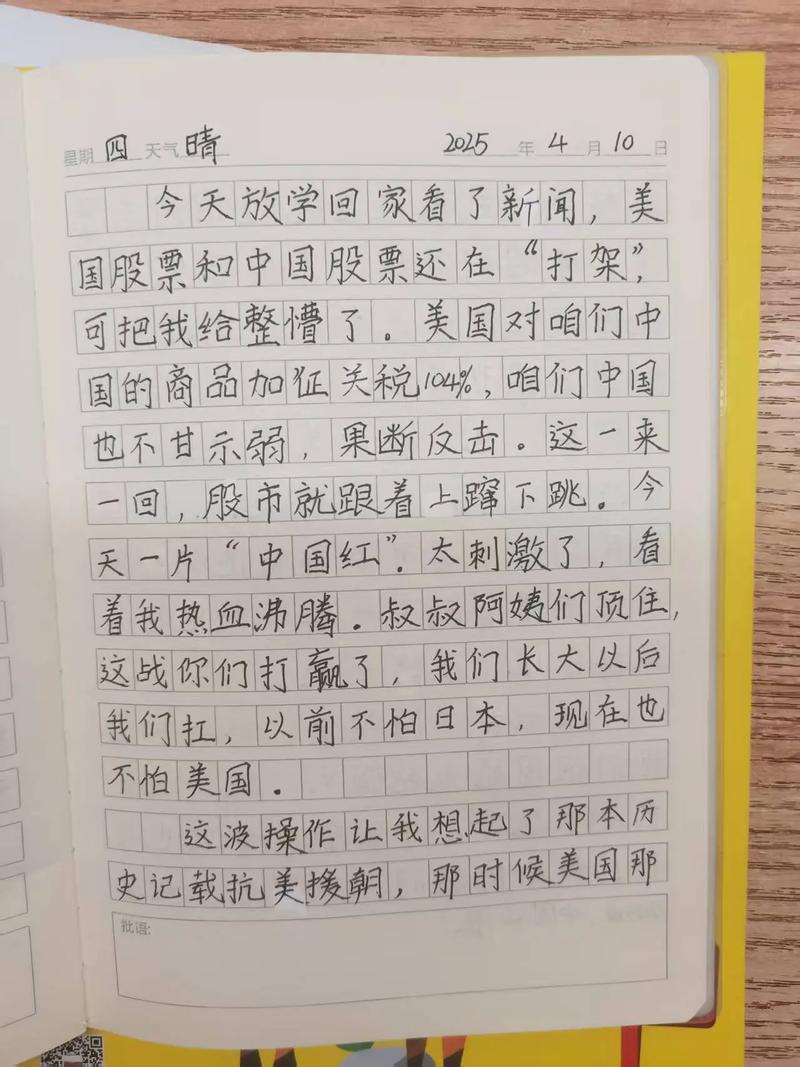 星期 四 天气 晴 2025 年 4 月 10 日
今天放学回家看了新闻，美
国股票和中国股票还在“打架”，
可把我给整懵了。美国对咱们中
国的商品加征关税104%，咱们中国
也不甘示弱，果断反击。这一来
一回，股市就跟着上蹿下跳。今
天一片“中国红”．太刺激了，看
着我热血沸腾．叔叔阿姨们顶住，
这战你们打赢了，我们长大以后
我们扛，以前不怕日本，现在也
不怕美国．
这波操作让我想起了那本历
史记载抗美援朝，那时候美国那
批语: